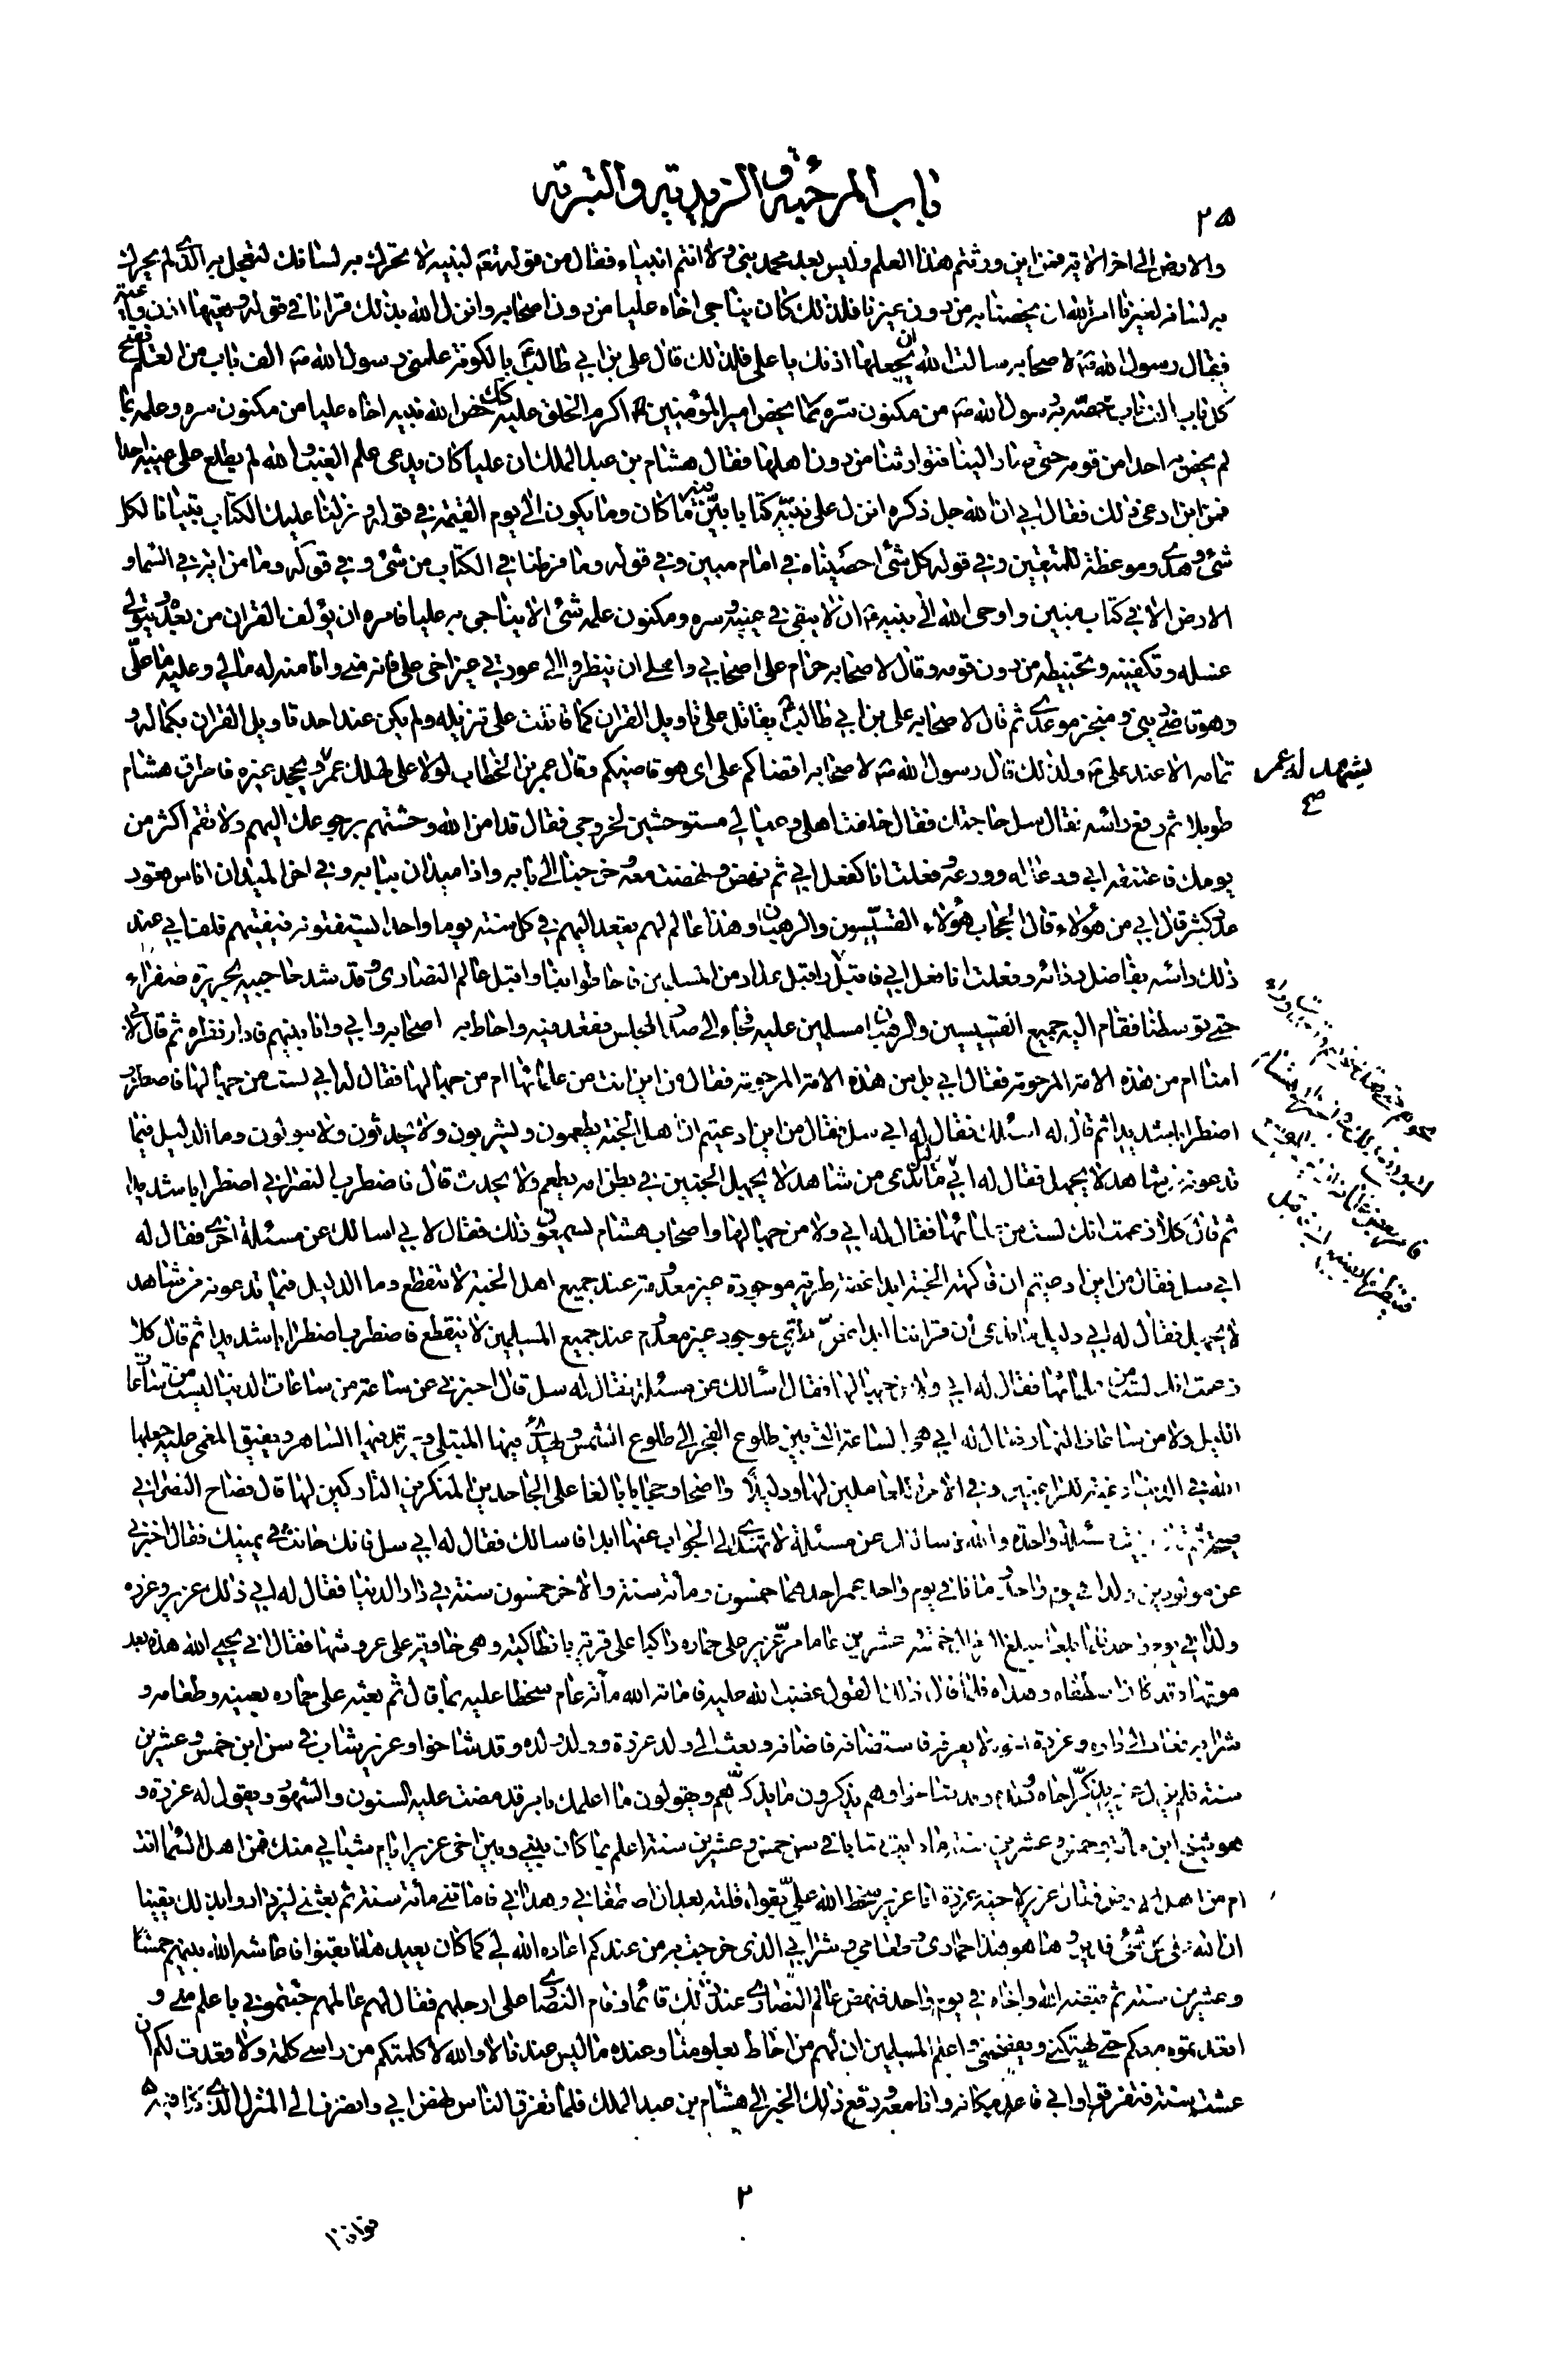 باب المرجئة والزيدية والبترية
٢٥
والارض الى اخر الاية فمن اين ورثتم هذا العلم وليس بعد محمد نبي ولا انتم انبياء فقال من قوله تعالى لنبيه لا تحرك به لسانك لتعجل به الذى لم يحرك
به لسانه لغيرنا امر الله ان يخصنا به من دون غيرنا فلذلك كان يناجى اخاه عليا من دون اصحابه وانزل الله بذلك قرانا في قوله وتعيها اذن واعية
فقال رسول الله لاصحابه سالت الله ان يجعلها اذنك يا على فلذلك قال على بن ابي طالب بالكوفة علمنى رسول الله الف باب من العلم يفتح
كل باب الف باب خصه رسول الله من مكنون سره كما يخص امير المؤمنين اكرم الخلق عليه كذلك خص الله نبيه اخاه عليا من مكنون سره وعلمه بما
لم يخص به احدا من قومه حتى صار الينا فتوارثنا من دون اهلها فقال هشام بن عبد الملك ان عليا كان يدعى علم الغيب والله لم يطلع على غيبه احدا
فمن اين ادعى ذلك فقال ابي ان الله جل ذكره انزل على نبيه كتابا بين فيه ما كان وما يكون الى يوم القيمة في قوله ونزلنا عليك الكتاب تبيانا لكل
شئ وهدى وموعظة للمتقين وفي قوله كل شئ احصيناه في امام مبين وفي قوله وما فرطنا في الكتاب من شئ وفي قوله وما من غائبة في السماء و
الارض الا في كتاب مبين واوحى الله الى نبيه ان لا يبقى في غيبه وسره ومكنون علمه شئ الا يناجى به عليا فامره ان يؤلف القران من بعده ويتولى
غسله وتكفينه وتحنيطه من دون قومه وقال لاصحابه حرام على اصحابي واهلى ان ينظروا الى عورتي غير اخى على فانه منى وانا منه له مالي وعليه ما على
وهو قاضى دينى ومنجز موعدى ثم قال لاصحابه على بن ابي طالب يقاتل على تاويل القران كما قاتلت على تنزيله ولم يكن عند احد تاويل القران بكماله و
تمامه الا عند على ولذلك قال رسول الله لاصحابه اقضاكم على اى هو قاضيكم وقال عمر بن الخطاب لولا على لهلك عمر ويجحد غيره فاطرق هشام
يشهد له عمر
صح
طويلا ثم رفع راسه فقال سل حاجتك فقال خلفت اهلى وعيالي مستوحشين لخروجى فقال قد امن الله وحشتهم برجوعك اليهم ولا تقم اكثر من
يومك فاعتنقه ابي ودعا له وودعه وفعلت انا كفعل ابي ثم نهض ونهضت معه وخرجنا الى بابه واذا ميدان ببابه وفي اخر الميدان اناس قعود
عدد كثير قال ابي من هؤلاء قال الحجاب هؤلاء القسيسون والرهبان وهذا عالم لهم يقعد اليهم في كل سنة يوما واحدا يستفتونه فيفتيهم فلف ابي عند
ذلك راسه بفاضل ردائه وفعلت انا فعل ابي فاقبل واقبل عداد من المسلمين فاحاطوا بنا واقبل عالم النصارى وقد شد حاجبيه بحريرة صفراء
حتى توسطنا فقام اليه جميع القسيسين والرهبان مسلمين عليه فجاء الى صدر المجلس فقعد فيه واحاط به اصحابه وابي وانا بينهم فادار نظره ثم قال لابي
امنا ام من هذه الامة المرحومة فقال ابي بل من هذه الامة المرحومة فقال من اين انت من علمائها ام من جهالها فقال له ابي لست من جهالها فاضطرب
اضطرابا شديدا ثم قال له اسئلك فقال له ابي سل فقال من اين ادعيتم ان اهل الجنة يطعمون ويشربون ولا يحدثون ولا يبولون وما الدليل فيما
تدعونه من شاهد لا يجهل فقال له ابي دليل ما ندعى من شاهد لا يجهل الجنين في بطن امه يطعم ولا يحدث قال فاضطرب النصراني اضطرابا شديدا
ثم قال كلا زعمت انك لست من علمائها فقال له ابي ولا من جهالها واصحاب هشام يسمعون ذلك فقال لابي اسالك عن مسئلة اخرى فقال له
ابي سل فقال من اين ادعيتم ان فاكهة الجنة ابدا غضة طرية موجودة غير معدومة عند جميع اهل الجنة لا تنقطع وما الدليل فيما تدعونه من شاهد
لا يجهل فقال له ابي دليل ما ندعى ان قراننا ابدا غض طرى موجود غير معدوم عند جميع المسلمين لا ينقطع فاضطرب اضطرابا شديدا ثم قال كلا
زعمت انك لست من علمائها فقال له ابي ولا من جهالها فقال اسالك عن مسئلة فقال له سل قال اخبرني عن ساعة من ساعات الدنيا ليست من ساعات
الليل ولا من ساعات النهار فقال له ابي هى الساعة التي بين طلوع الفجر الى طلوع الشمس يهدء فيها المبتلى ويرقد فيها الساهر ويفيق المغمى عليه جعلها
الله في الدنيا رغبة للراغبين وفي الاخرة للعاملين لها ودليلا واضحا وحجابا بالغا على الجاحدين المنكرين التاركين لها قال فصاح النصراني
صيحة ثم قال بقيت مسئلة واحدة والله لاسالنك عن مسئلة لا تهتدى الى الجواب عنها ابدا فاسالك فقال له ابي سل فانك حانث في يمينك فقال اخبرني
عن مولودين ولدا في يوم واحد وماتا في يوم واحد عمر احدهما خمسون ومأة سنة والاخر خمسون سنة في دار الدنيا فقال له ابي ذلك عزير وعزرة
ولدا في يوم واحد فلما بلغا مبلغ الرجال خمسة وعشرين عاما مر عزير على حماره راكبا على قرية بانطاكية وهى خاوية على عروشها فقال انى يحيى الله هذه بعد
موتها وقد كان اصطفاه وهداه فلما قال ذلك القول غضب الله عليه فاماته الله مأة عام سخطا عليه بما قال ثم بعثه على حماره بعينه وطعامه و
شرابه فعاد الى داره وعزرة اخوه لا يعرفه فاستضافه فاضافه وبعث الى ولد عزرة وولد ولده وقد شاخوا وعزير شاب في سن ابن خمس وعشرين
سنة فلم يزل عزير يذكر اخاه وولده وقد شاخوا وهم يذكرون ما يذكرهم ويقولون ما اعلمك بامر قد مضت عليه السنون والشهور ويقول له عزرة و
هو شيخ ابن مأة وخمس وعشرين سنة ما رايت شابا في سن خمس وعشرين سنة اعلم بما كان بيني وبين اخى عزير ايام شبابي منك فمن اهل السماء انت
ام من اهل الارض فقال عزير لاخيه عزرة انا عزير سخط الله على بقول قلته بعد ان اصطفاني وهداني فاماتني مأة سنة ثم بعثني ليزدادوا بذلك يقينا
ان الله على كل شئ قدير وها هو هذا حمارى وطعامى وشرابي الذى خرجت به من عندكم اعاده الله لي كما كان بعيد هلفا يقنوا فاعاشه الله بينهم خمسا
وعشرين سنة ثم قبضه الله واخاه في يوم واحد فنهض عالم النصارى عند ذلك قائما وقام النصارى على ارجلهم فقال لهم عالمهم جئتموني باعلم منى و
اقعدتموه معكم حتى هتكنى وفضحنى واعلم المسلمين ان لهم من احاط بعلومنا وعنده ما ليس عندنا لا والله لا كلمتكم من راسى كلمة ولا قعدت لكم ان
عشت سنة فتفرقوا وابي قاعد مكانه وانا معه ورفع ذلك الخبر الى هشام بن عبد الملك فلما تفرق الناس نهض ابي وانصرف الى المنزل الذى كنا فيه
٢